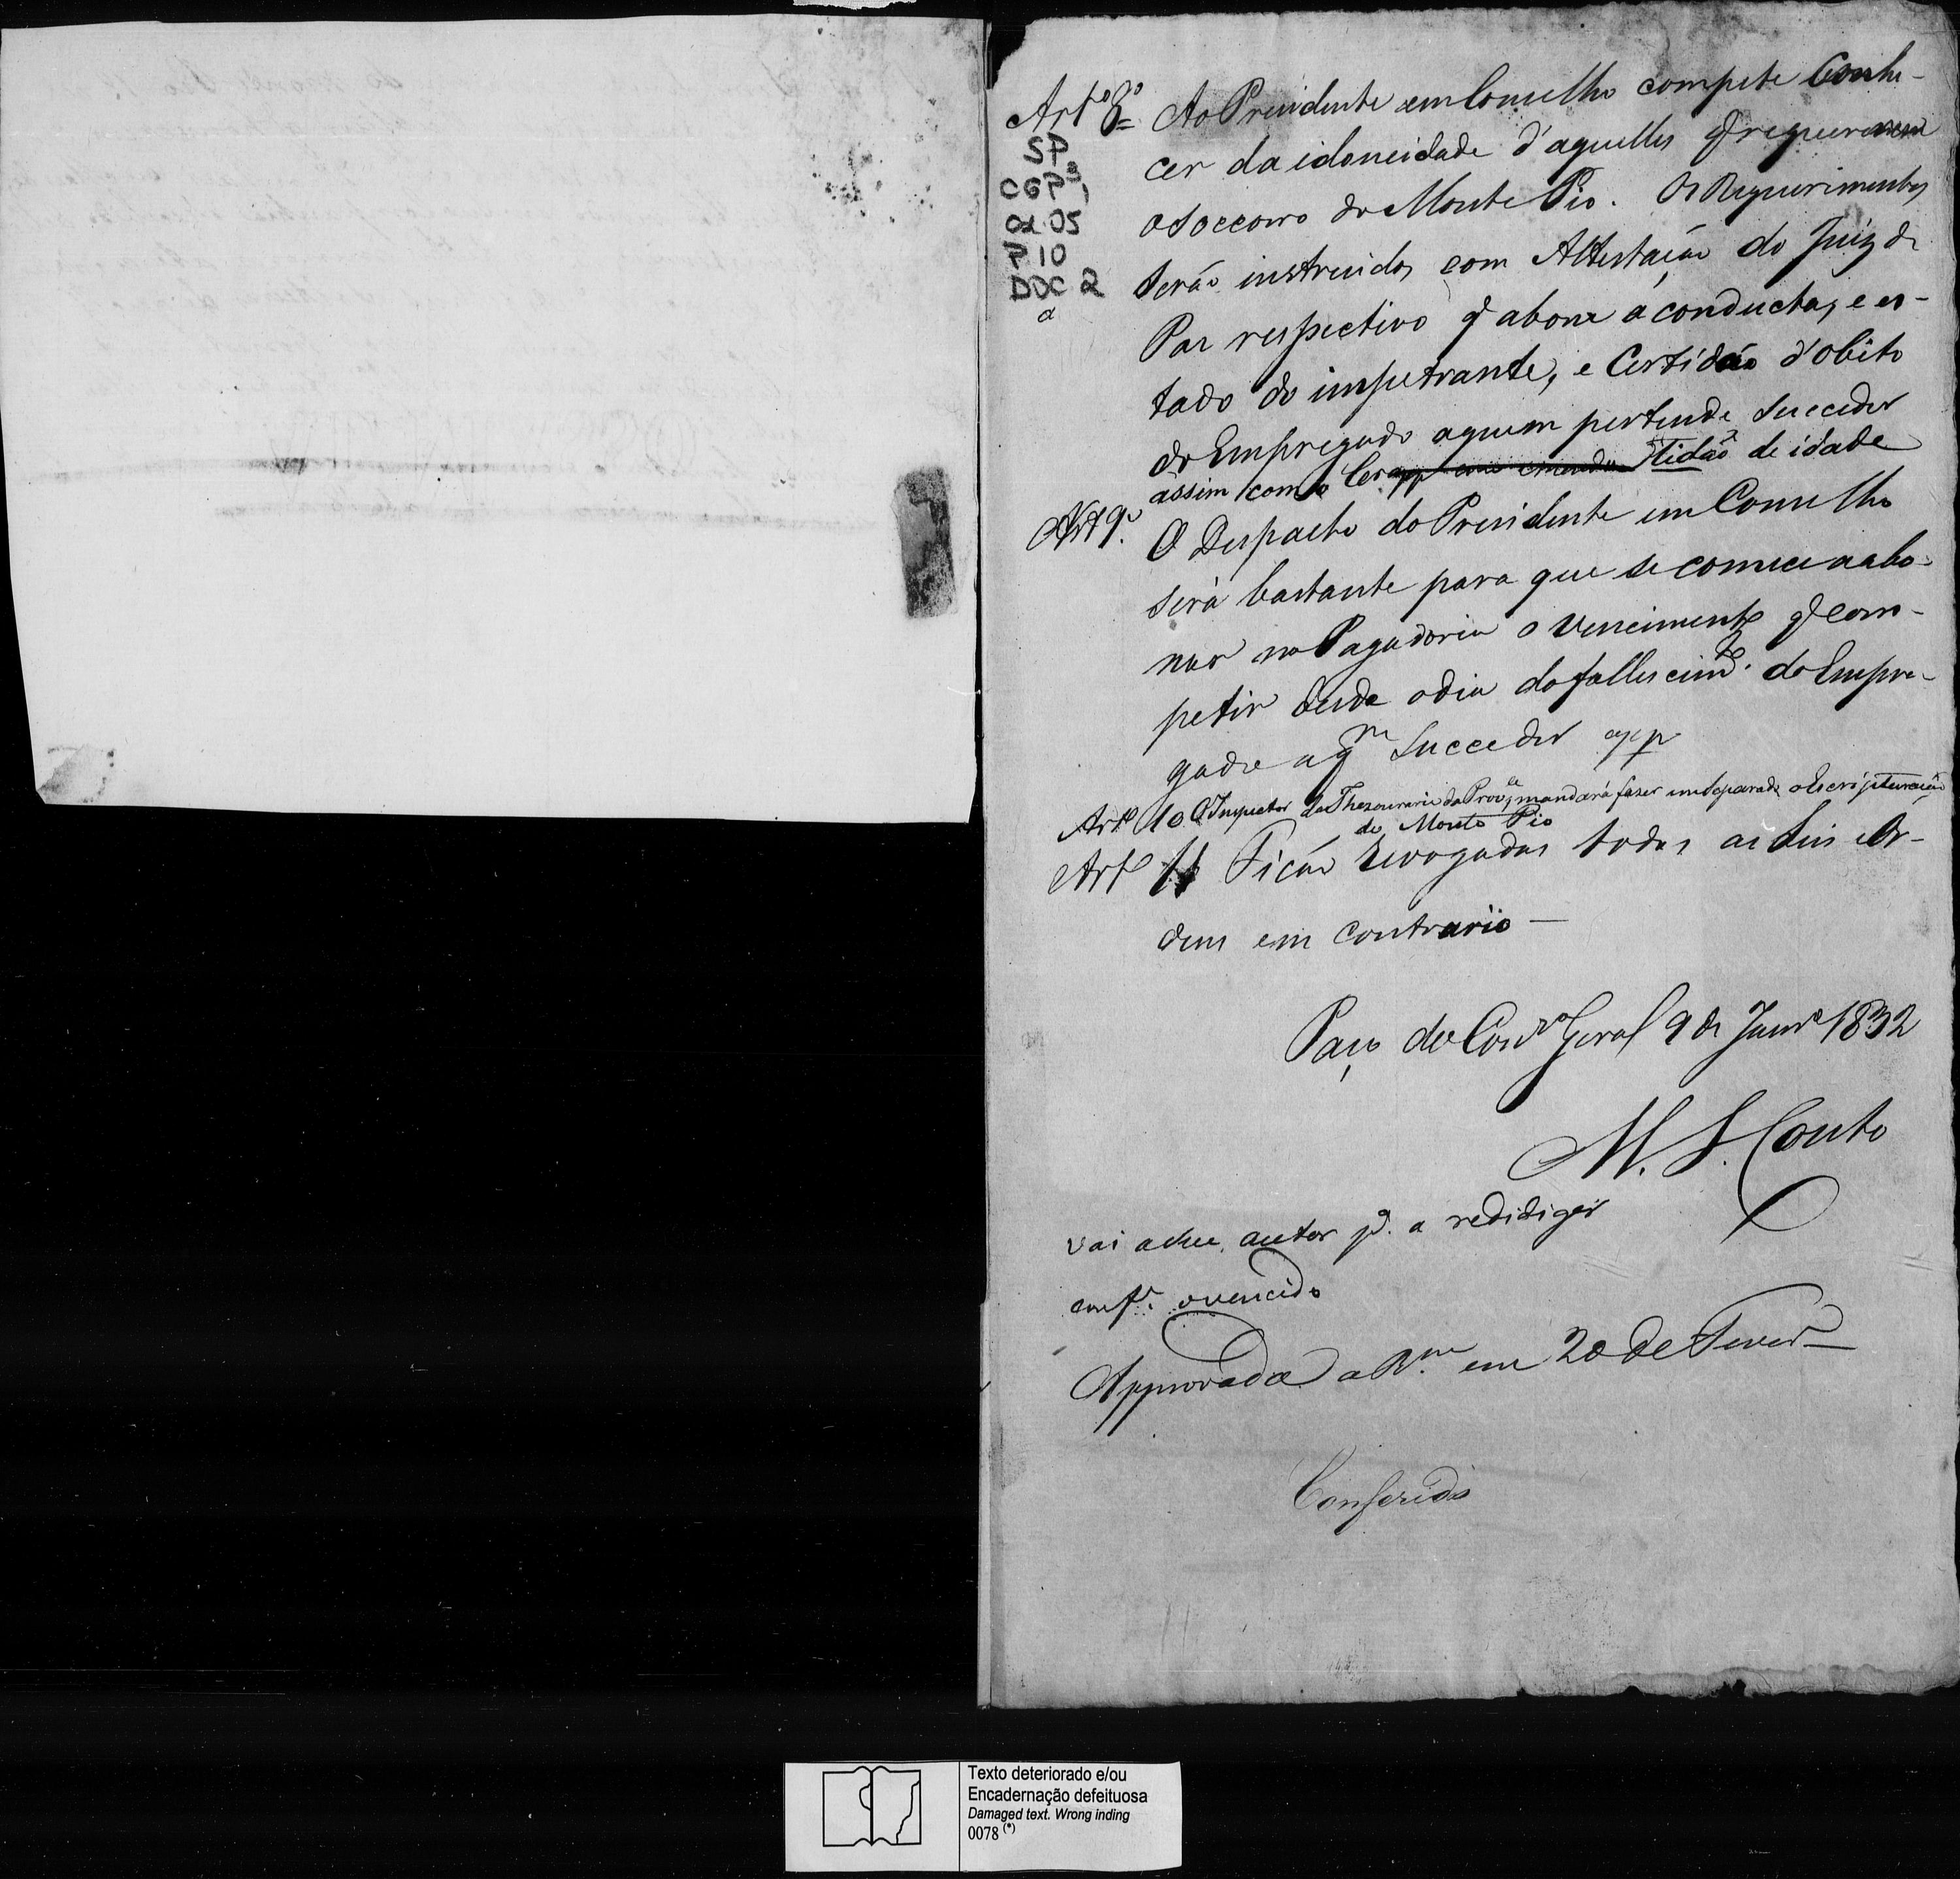 Artº 8º Ao Presidente em Conselho compete Conhe-
SP
CGPª1
Cx 05
P 10
DOC 2
a
cer da idoneidade d'aquelles q requererem
o Soccorro do Monte Pio. Os Requerimentos
serão instruidos com Attestação do Juiz de
Paz respectivo q abone a conducta, e es-
tado do impetrante, e Certidão d'obito
do Empregado aquem pertende succeder
assim como Certidão de idade
Art 9º O Despacho do Presidente em Conselho
será bastante para que se comece a abo-
nar na Pagadoria o vencimento q com-
petir desde o dia do fallescimtº do Empre-
gado a qm succeder app
Artº 10 O Inspector da Thezouraria da Provª mandará fazer em separado a Escripturação
do Monte Pio
Artº 11 Ficão Revogadas todas as Leis e Or-
dens em contrario —
Paço do Consº Geral 9 de Janrº 1832
M. S. Couto
Vai a seu autor pª a redidiger
confe o vencido
Approvada a Rm em 20 de Fever
Conferida
Texto deteriorado e/ou
Encadernação defeituosa
Damaged text. Wrong inding
0078 (*)